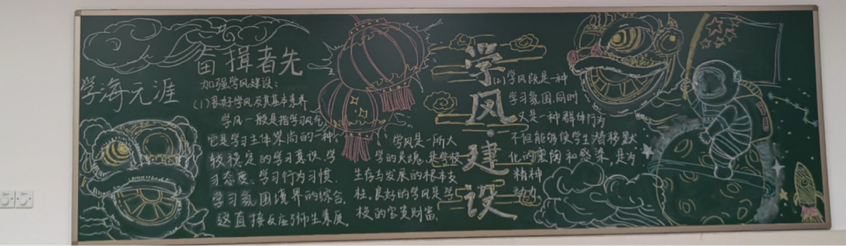 学海无涯
奋揖者先
加强学风建设:
(1)良好学风及其基本素养
学风一般是指学习风气
它是学习主体崇尚的一种
较稳定的学习意识、学
习态度、学习行为习惯、
学习氛围境界的综合,
这直接反应了师生素质
学风是一所大
学的灵魂,是学校
生存与发展的根本支
柱,良好的学风是学
校的宝贵财富.
学风·建设
(2)学风既是一种
学习氛围,同时
又是一种群体行为
不但能够使学生潜移默
化的熏陶和感染,是为
精神
动力